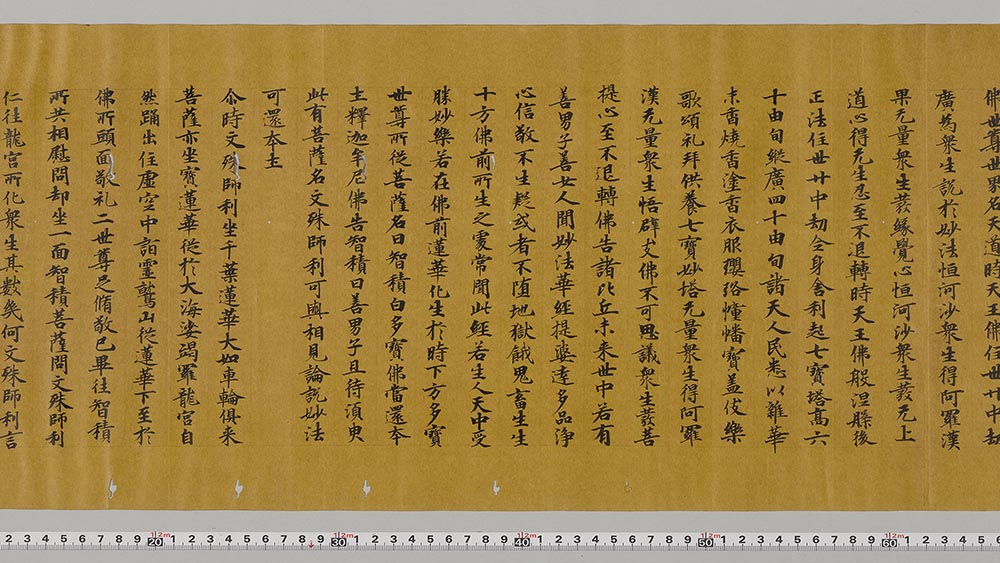 佛世尊世界名天道時天王佛住世廿中劫
廣為衆生説於妙法恒河沙衆生得阿羅漢
果无量衆生發縁覺心恒河沙衆生發无上
道心得无生忍至不退轉時天王佛般涅槃後
正法住世廿中劫全身舍利起七寶塔髙六
十由旬縱廣四十由旬諸天人民悉以雜華
末香燒香塗香衣服瓔珞幢幡寶盖伎樂
歌頌礼拜供養七寶妙塔无量衆生得阿羅
漢无量衆生悟辟支佛不可思議衆生發菩
提心至不退轉佛告諸比丘未来世中若有
善男子善女人聞妙法華經提婆達多品浄
心信敬不生疑或者不堕地獄餓鬼畜生生
十方佛前所生之處常聞此經若生人天中受
勝妙樂若在佛前蓮華化生於時下方多寶
世尊所従菩薩名曰智積白多寶佛當還本
土釋迦牟尼佛告智積曰善男子且待須臾
此有菩薩名文殊師利可與相見論説妙法
可還本土
尒時文殊師利坐千葉蓮華大如車輪俱来
菩薩亦坐寶蓮華従於大海娑竭羅龍宮自
然踊出住虚空中詣霊鷲山従蓮華下至於
佛所頭面敬礼二世尊足脩敬已畢往智積
所共相慰問却坐一面智積菩薩問文殊師利
仁往龍宮所化衆生其數幾何文殊師利言
2 3 4 5 6 7 8 9 20 1 2 3 4 5 6 7 8 9 30 1 2 3 4 5 6 7 8 9 40 1 2 3 4 5 6 7 8 9 50 1 2 3 4 5 6 7 8 9 60 1 2 3 4 5 6